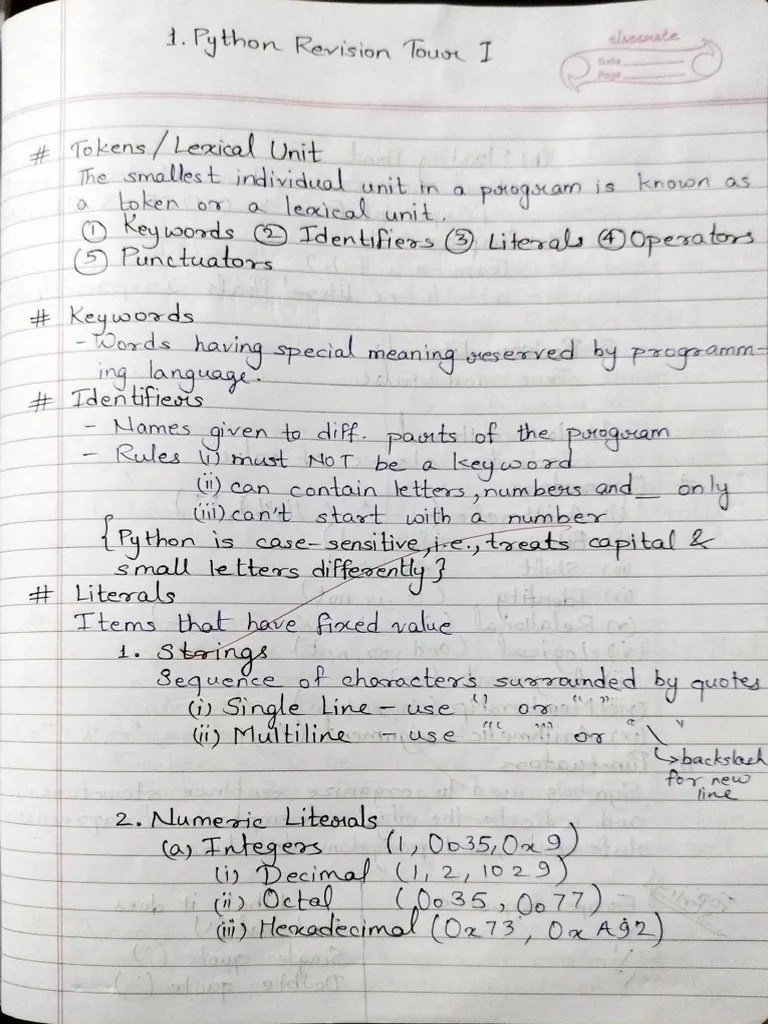 1. Python Revision Tour I
classmate
Date
Page
# Tokens / Lexical Unit
The smallest individual unit in a program is known as
a token or a lexical unit.
① Keywords ② Identifiers ③ Literals ④ Operators
⑤ Punctuators
# Keywords
- Words having special meaning reserved by programm-
ing language.
# Identifiers
- Names given to diff. parts of the program
- Rules (i) must NOT be a keyword
(ii) can contain letters, numbers and _ only
(iii) can't start with a number
{Python is case-sensitive, i.e., treats capital &
small letters differently}
# Literals
Items that have fixed value
1. Strings
Sequence of characters surrounded by quotes
(i) Single Line - use ' ' or " "
(ii) Multiline - use """ """ or " \ "
↳ backslash
for new
line
2. Numeric Literals
(a) Integers (1, 0o35, 0x9)
(i) Decimal (1, 2, 1029)
(ii) Octal (0o35, 0o77)
(iii) Hexadecimal (0x73, 0xA92)